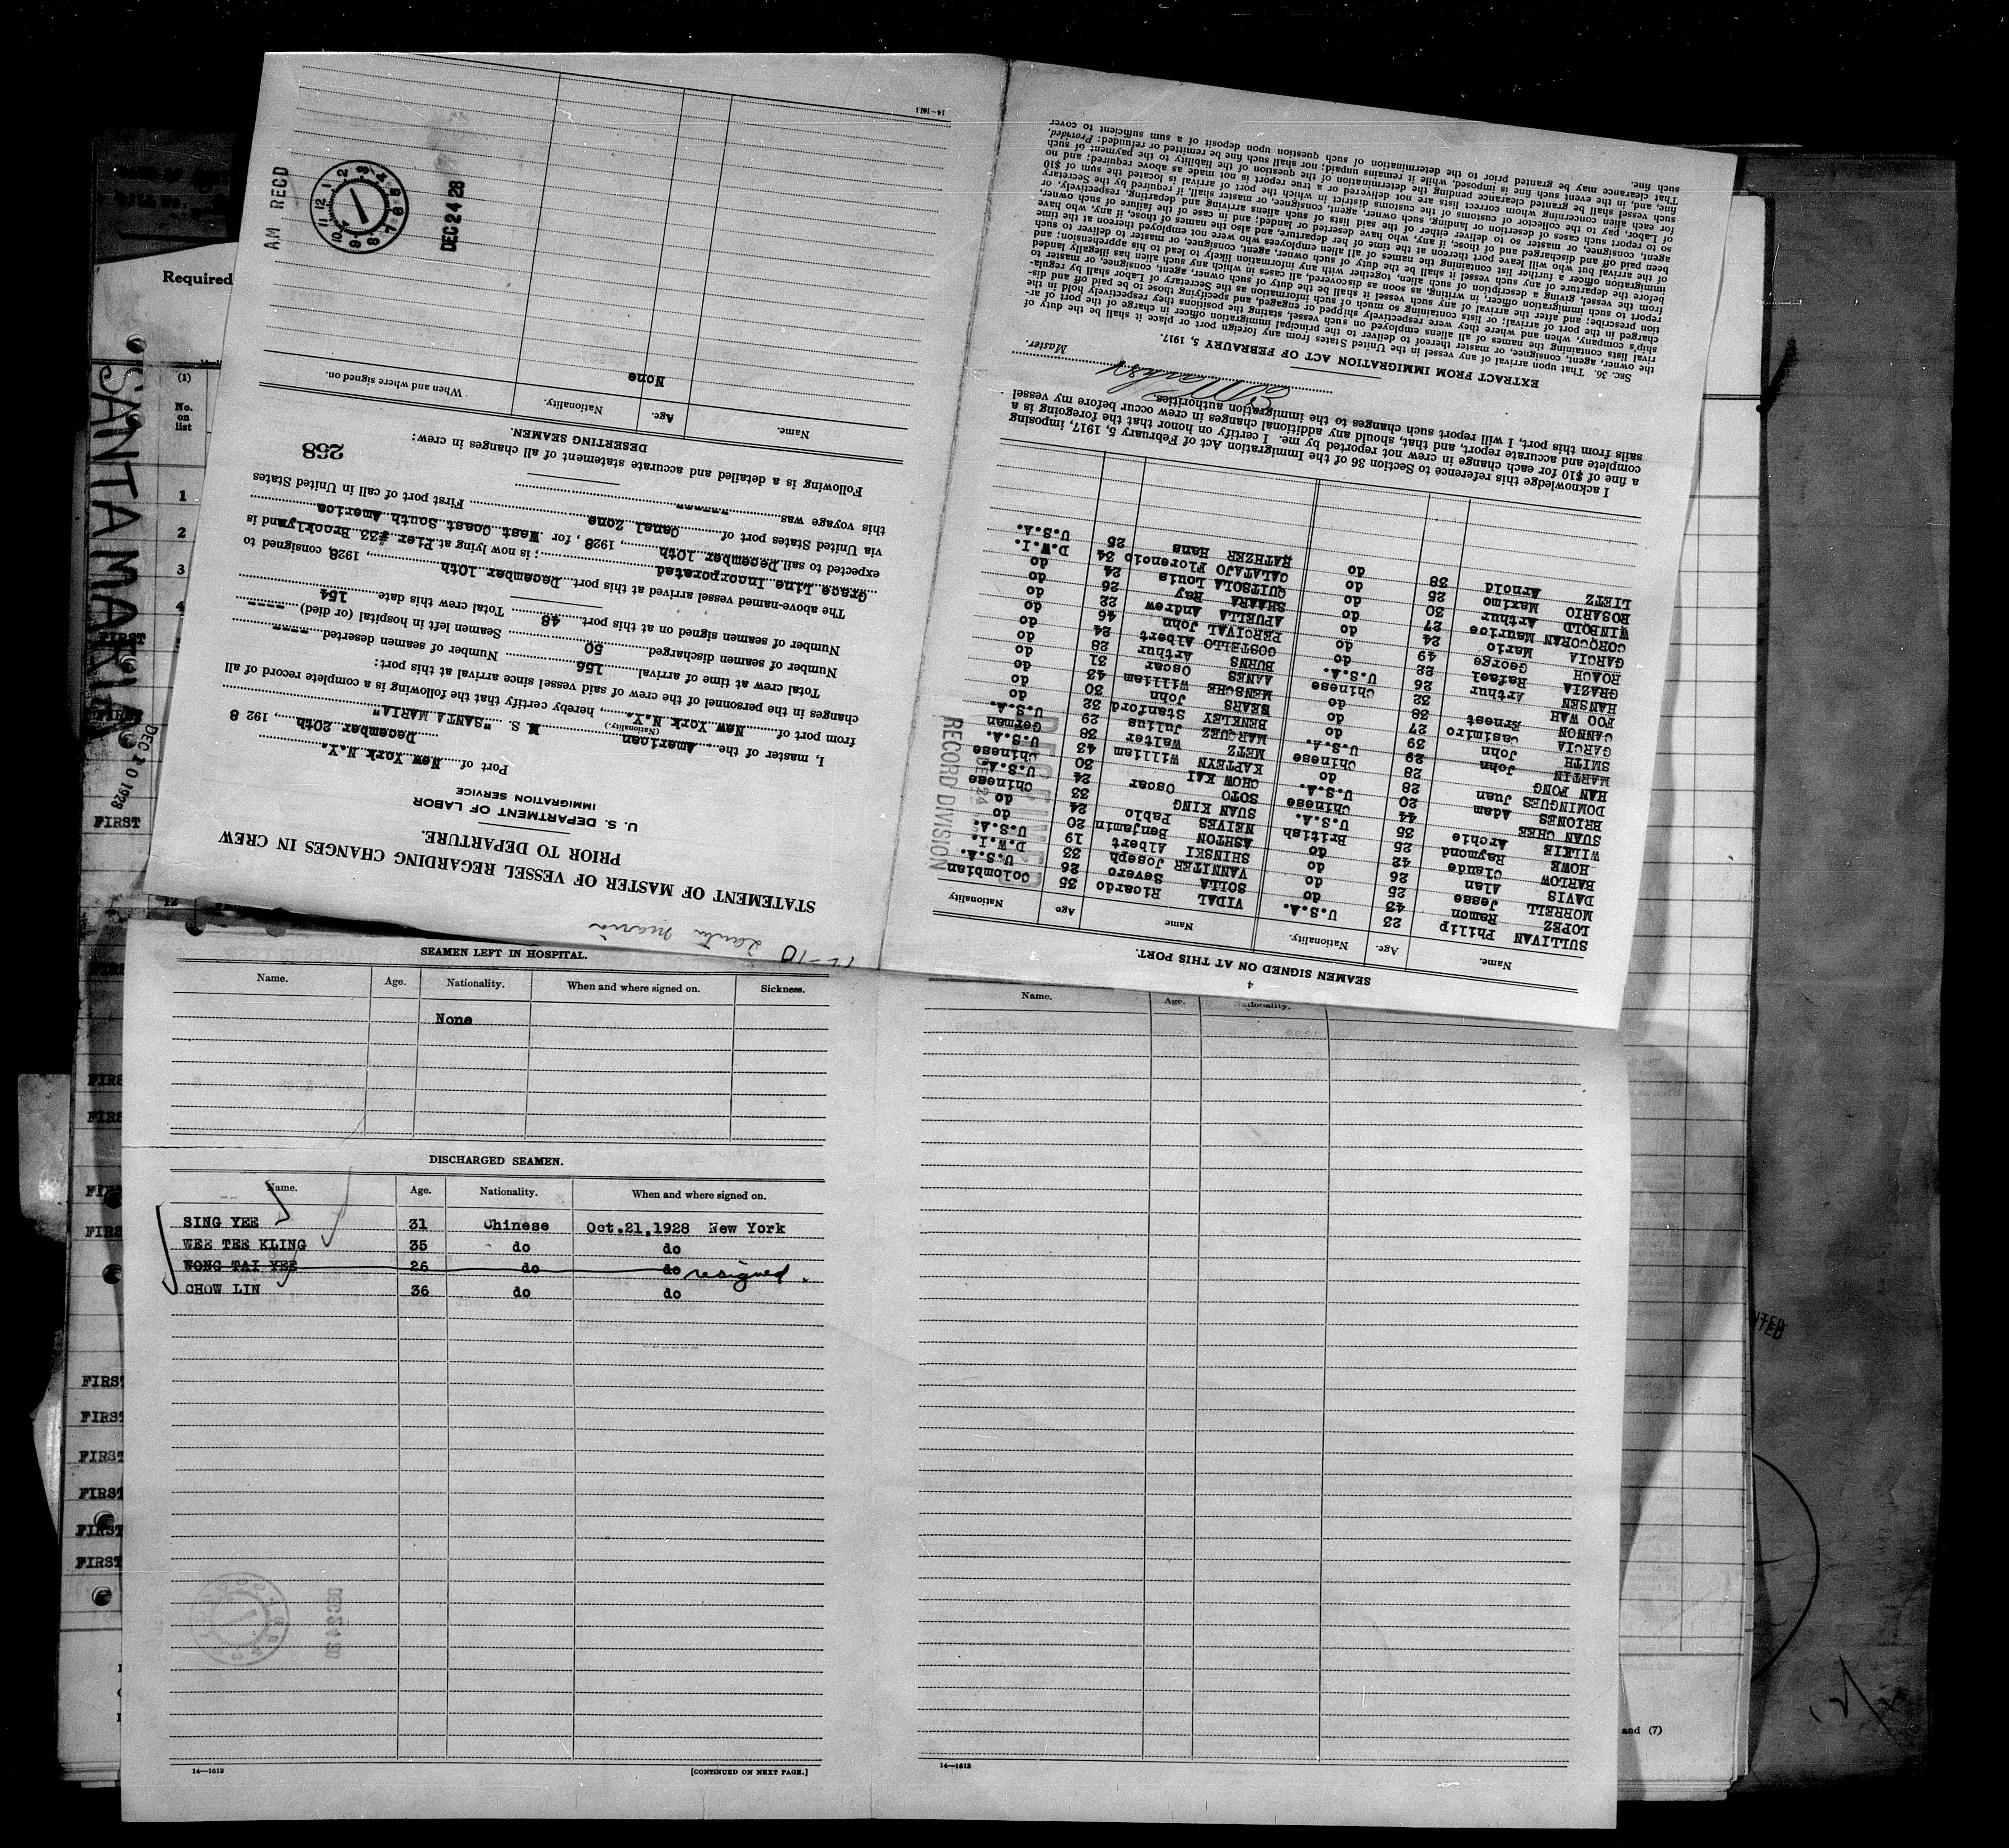 STATEMENT OF MASTER OF VESSEL REGARDING CHANGES IN CREW
PRIOR TO DEPARTURE.
U. S. DEPARTMENT OF LABOR
IMMIGRATION SERVICE
Port of New York N.Y.
December 20th, 1928
I, master of the American (Nationality) M S. "SANTA MARIA"
from port of New York N.Y., hereby certify that the following is a complete record of all
changes in the personnel of the crew of said vessel since arrival at this port:
Total crew at time of arrival 156 Number of seamen deserted ----
Number of seamen discharged 50 Seamen left in hospital (or died) ----
Number of seamen signed on at this port 48 Total crew this date 154
The above-named vessel arrived at this port December 10th, 1928 consigned to
Grace Line Incorporated; is now lying at Pier #33 Brooklyn and is
expected to sail December 10th, 1928, for West Coast South America
via United States port of Canal Zone First port of call in United States
this voyage was ------
Following is a detailed and accurate statement of all changes in crew:
268
DESERTING SEAMEN.
Name. Age. Nationality. When and where signed on.
None
AM RECD
DEC 24 28
14-1613
12-10 Santa Maria
4
SEAMEN SIGNED ON AT THIS PORT.
Name. Age. Nationality. Name Age Nationality
SULLIVAN Philip 23 U.S.A. VIDAL Ricardo 35 Colombian
LOPEZ Ramon 43 do SOLLA Severo 26 U.S.A.
MORRELL Jesse 25 do VANNITER Joseph 33 D.W.I.
DAVIS Alan 26 do SHINSKI Albert 19 U.S.A.
BARLOW Claude 42 do ASHTON Benjamin 20 do
HOWE Raymond 25 British NEIVES Pablo 24 do
WILKIE Archie 35 U.S.A. SUAN KING 33 Chinese
SUAN CHEE 44 Chinese SOTO Oscar 24 U.S.A.
BRIONES Adam 20 U.S.A. CHOW KAI 30 Chinese
DOMINGUES Juan 28 do KAPTEYN William 43 U.S.A.
HAN FONG 28 Chinese METZ Walter 38 German
MARTIN John 29 U.S.A. MARQUEZ Julius 29 U.S.A.
SMITH John 39 do BENKLEY Stanford 32 do
GARCIA Casimiro 27 do SEARS John 30 do
CANNON Ernest 38 do MENSCHE William 43 do
FOO WAH 32 Chinese AANES Oscar 31 do
HANSEN Arthur 26 U.S.A. BURNS Arthur 28 do
GRAZIA Rafael 22 do COSTELLO Albert 24 do
ROACH George 49 do PERCIVAL John 46 do
GARCIA Mario 24 do APUELLA Andrew 22 do
CORCORAN Maurice 27 do SHAARA Ray 26 do
WINBOLD Arthur 30 do QUITSOLA Louis 24 do
ROSARIO Maximo 25 do GALATAJO Florencio 34 D.W.I.
LIETZ Arnold 38 do RATHZER Hans 25 U.S.A.
RECEIVED
DEC 24
RECORD DIVISION
I acknowledge this reference to Section 36 of the Immigration Act of February 5, 1917, imposing
a fine of $10 for each change in crew not reported by me. I certify on honor that the foregoing is a
complete and accurate report, and that, should any additional changes in crew occur before my vessel
sails from this port, I will report such changes to the immigration authorities.
Master.
EXTRACT FROM IMMIGRATION ACT OF FEBRAURY 5, 1917.
SEC. 36. That upon arrival of any vessel in the United States from any foreign port or place it shall be the duty of
the owner, agent, consignee, or master thereof to deliver to the principal immigration officer in charge of the port of ar-
rival lists containing the names of all aliens employed on such vessel, stating the positions they respectively hold in the
ship's company, when and where they were respectively shipped or engaged, and specifying those to be paid off and dis-
charged in the port of arrival; or lists containing so much of such information as the Secretary of Labor shall by regula-
tion prescribe; and after the arrival of any such vessel it shall be the duty of such owner, agent, consignee, or master to
report to such immigration officer, in writing, as soon as discovered, all cases in which any such alien has illegally landed
from the vessel, giving a description of such alien, together with any information likely to lead to his apprehension; and
before the departure of any such vessel it shall be the duty of such owner, agent, consignee, or master to deliver to such
immigration officer a further list containing the names of all alien employees who were not employed thereon at the time
of the arrival but who will leave port thereon at the time of her departure, and also the names of those, if any, who have
been paid off and discharged and of those, if any, who have deserted or landed; and in case of the failure of such owner,
agent, consignee, or master so to deliver either of the said lists of such aliens arriving and departing, respectively, or
so to report such cases of desertion or landing, such owner, agent, consignee, or master shall, if required by the Secretary
of Labor, pay to the collector of customs of the customs district in which the port of arrival is located the sum of $10
for each alien concerning whom correct lists are not delivered or a true report is not made as above required; and no
such vessel shall be granted clearance pending the determination of the question of the liability to the payment of such
fine, and, in the event such fine is imposed, while it remains unpaid; nor shall such fine be remitted or refunded: Provided,
That clearance may be granted prior to the determination of such question upon deposit of a sum sufficient to cover
such fine.
Required
(1)
No.
on
list
1
2
3
4
12
SANTA MARIA
DEC 10 1928
FIRST
FIRST
FIRST
FIRST
FIRST
FIRST
FIRST
FIRST
FIRST
FIRST
SEAMEN LEFT IN HOSPITAL.
Name. Age. Nationality. When and where signed on. Sickness.
None
DISCHARGED SEAMEN.
Name. Age. Nationality. When and where signed on.
SING YEE 31 Chinese Oct.21,1928 New York
WEE TEE KLING 35 do do
WONG TAI YEE 26 do do resigned.
CHOW LIN 36 do do
14—1613 [CONTINUED ON NEXT PAGE.]
Name. Age. Nationality.
14—1613
and (7)